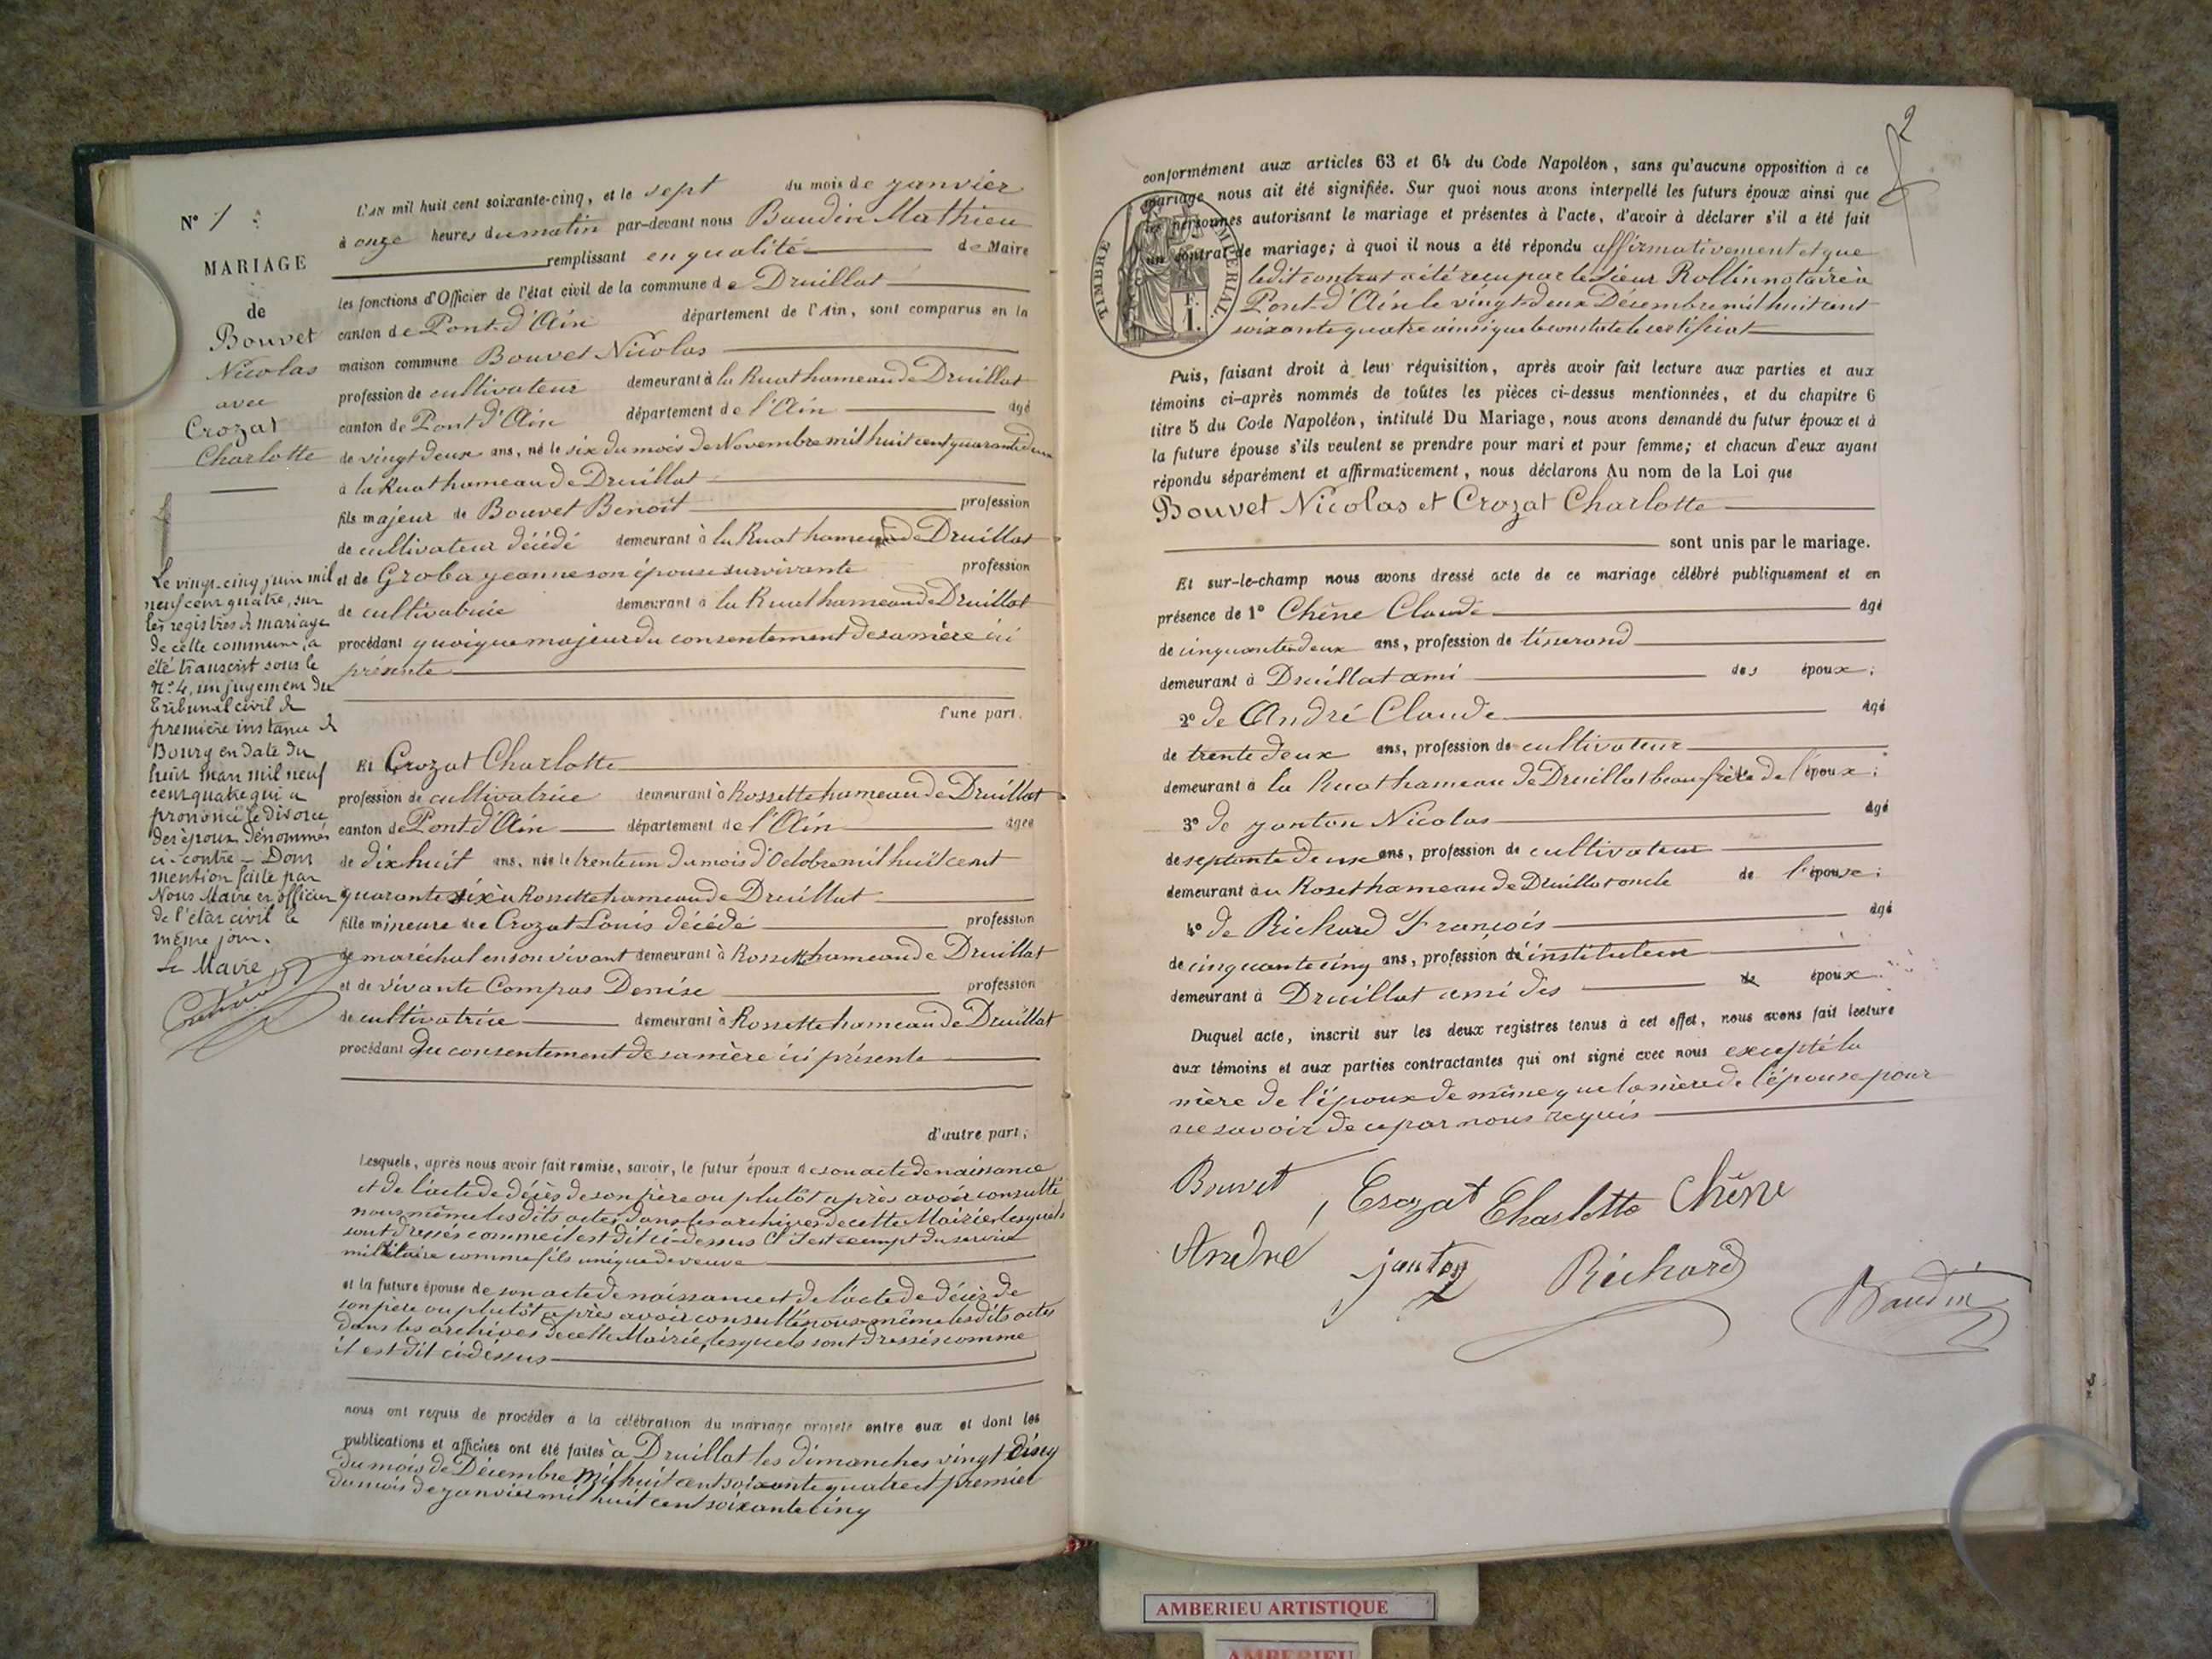 N° 1
MARIAGE
de
Bouvet
Nicolas
avec
Crozat
Charlotte
Le vingt-cinq juin mil
neuf cent quatre, sur
les registres de mariage
de cette commune, a
été transcrit sous le
N° 4, un jugement du
Tribunal civil de
première instance de
Bourg en date du
huit mars mil neuf
cent quatre qui a
prononcé le divorce
des époux dénommés
ci-contre - Dont
mention faite par
Nous Maire et officier
de l'état civil le
même jour.
Le Maire
L'AN mil huit cent soixante-cinq, et le sept du mois de janvier
à onze heures du matin par-devant nous Baudin Mathieu
remplissant en qualité de Maire
les fonctions d'Officier de l'état civil de la commune de Druillat
canton de Pont-d'Ain département de l'Ain, sont comparus en la
maison commune Bouvet Nicolas
profession de cultivateur demeurant à la Ruat hameau de Druillat
canton de Pont d'Ain département de l'Ain âgé
de vingt deux ans, né le six du mois de Novembre mil huit cent quarante deux
à la Ruat hameau de Druillat
fils majeur de Bouvet Benoît profession
de cultivateur décédé demeurant à la Ruat hameau de Druillat
et de Groba jeanne son épouse survivante profession
de cultivatrice demeurant à la Ruat hameau de Druillat
procédant quoique majeur du consentement de sa mère ici
présente
d'une part.
Et Crozat Charlotte
profession de cultivatrice demeurant à Rossette hameau de Druillat
canton de Pont d'Ain département de l'Ain âgée
de dix huit ans, née le trente un du mois d'Octobre mil huit cent
quarante six à Rossette hameau de Druillat
fille mineure de Crozat Louis décédé profession
de maréchal en son vivant demeurant à Rossette hameau de Druillat
et de vivante Compas Denise profession
de cultivatrice demeurant à Rossette hameau de Druillat
procédant du consentement de sa mère ici présente
d'autre part;
Lesquels, après nous avoir fait remise, savoir, le futur époux de son acte de naissance
et de l'acte de décès de son père ou plutôt après avoir consulté
nous même les dits actes dans les archives de cette Mairie lesquels
sont dressés comme il est dit ci-dessus Il est exempt du service
militaire comme fils unique de veuve
et la future épouse de son acte de naissance et de l'acte de décès de
son père ou plutôt après avoir consulté nous-même les dits actes
dans les archives de cette Mairie, lesquels sont dressés comme
il est dit ci-dessus
nous ont requis de procéder à la célébration du mariage projeté entre eux et dont les
publications et affiches ont été faites à Druillat les dimanches vingt cinq
du mois de Décembre mil huit cent soixante quatre et premier
du mois de janvier mil huit cent soixante cinq
2
conformément aux articles 63 et 64 du Code Napoléon, sans qu'aucune opposition à ce
mariage nous ait été signifiée. Sur quoi nous avons interpellé les futurs époux ainsi que
les personnes autorisant le mariage et présentes à l'acte, d'avoir à déclarer s'il a été fait
un contrat de mariage; à quoi il nous a été répondu affirmativement et que
ledit contrat a été reçu par le Sieur Rollin notaire à
Pont-d'Ain le vingt deux Décembre mil huit cent
soixante quatre ainsi que le constate le certificat
TIMBRE IMPÉRIAL.
1 F.
Puis, faisant droit à leur réquisition, après avoir fait lecture aux parties et aux
témoins ci-après nommés de toutes les pièces ci-dessus mentionnées, et du chapitre 6
titre 5 du Code Napoléon, intitulé Du Mariage, nous avons demandé au futur époux et à
la future épouse s'ils veulent se prendre pour mari et pour femme; et chacun d'eux ayant
répondu séparément et affirmativement, nous déclarons Au nom de la Loi que
Bouvet Nicolas et Crozat Charlotte
sont unis par le mariage.
Et sur-le-champ nous avons dressé acte de ce mariage célébré publiquement et en
présence de 1° Chêne Claude âgé
de cinquante deux ans, profession de tisserand
demeurant à Druillat ami des époux;
2° de André Claude âgé
de trente deux ans, profession de cultivateur
demeurant à la Ruat hameau de Druillat beau frère de l'époux;
3° de janton Nicolas âgé
de septante deux ans, profession de cultivateur
demeurant au Roset hameau de Druillat oncle de l'épouse;
4° de Richard François âgé
de cinquante cinq ans, profession d'instituteur
demeurant à Druillat ami des époux
Duquel acte, inscrit sur les deux registres tenus à cet effet, nous avons fait lecture
aux témoins et aux parties contractantes qui ont signé avec nous excepté la
mère de l'époux de même que la mère de l'épouse pour
ne savoir de ce par nous requis
Bouvet Crozat Charlotte Chêne
André janton Richard Baudin
AMBERIEU ARTISTIQUE
AMBERIEU